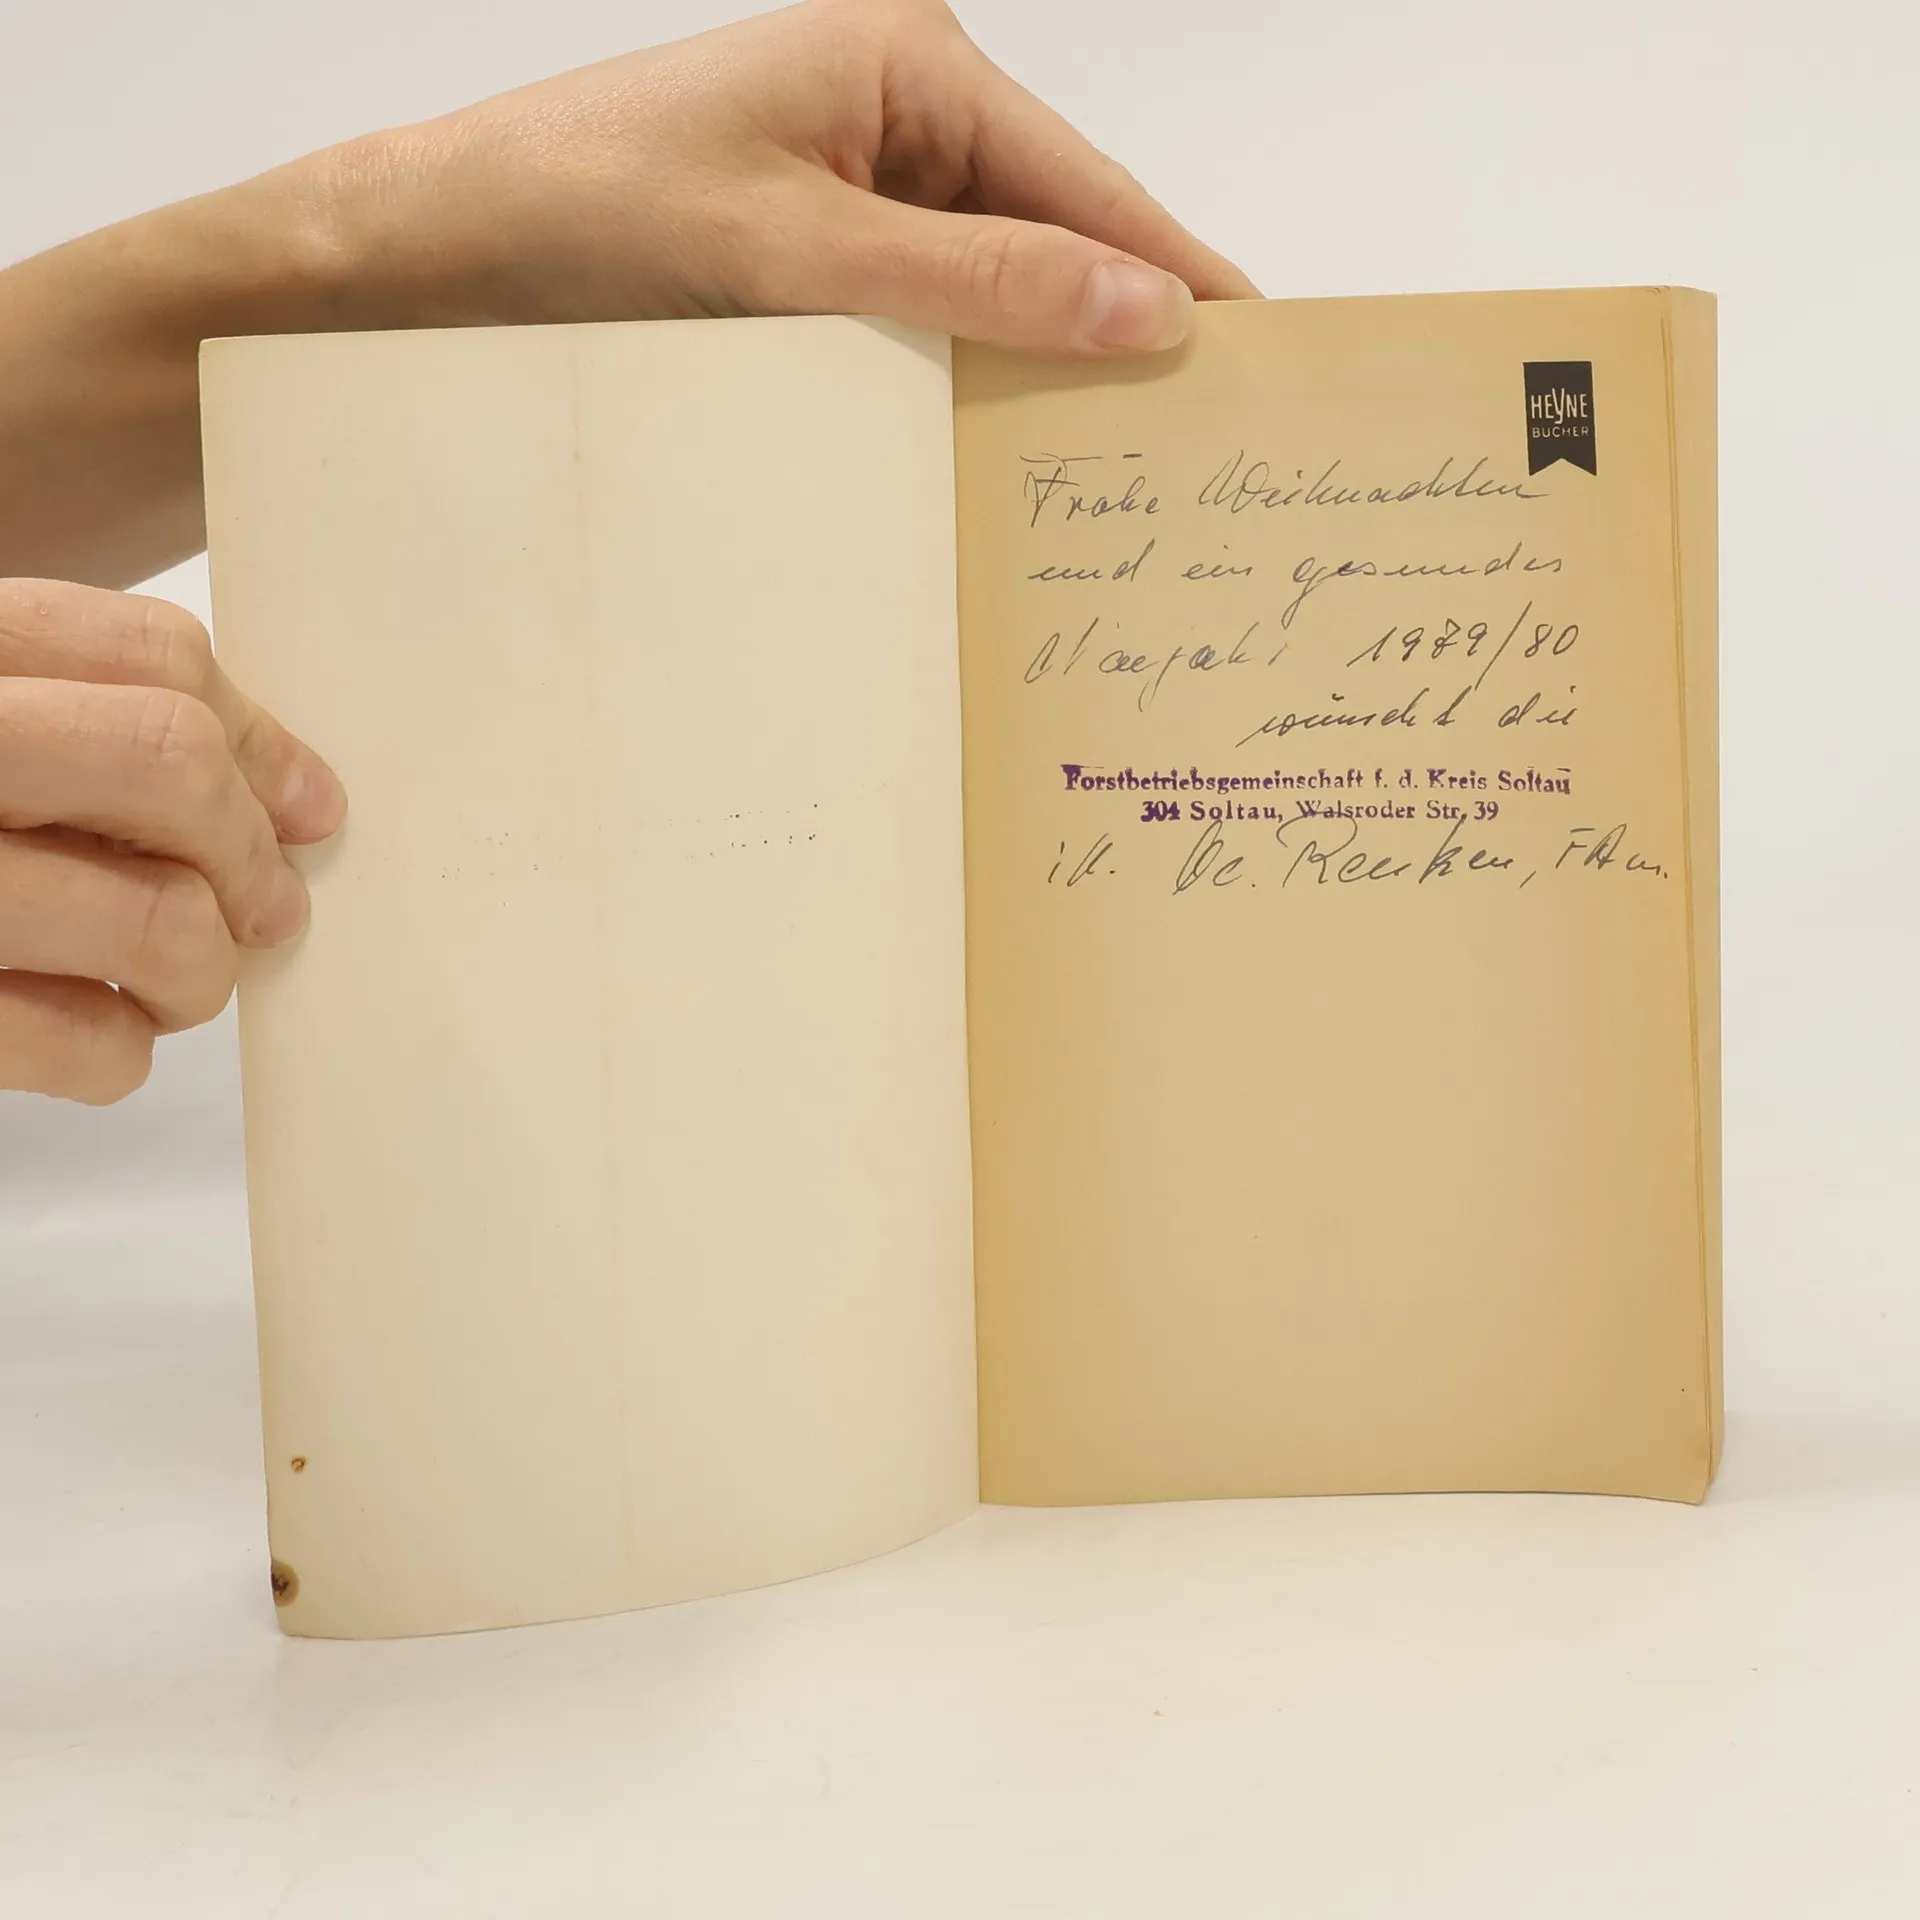 HEYNE
BÜCHER
Frohe Weihnachten
und ein gesundes
Neujahr 1979/80
wünscht die
Forstbetriebsgemeinschaft f. d. Kreis Soltau
304 Soltau, Walsroder Str. 39
i.A.